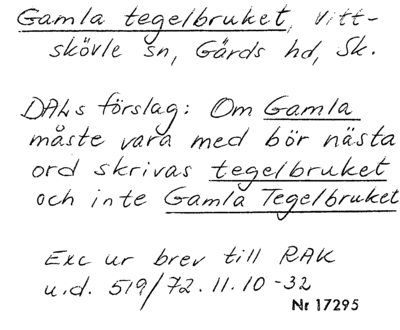 Gamla tegelbruket, Vitt-
skövle sn, Gärds hd, Sk.
DALs förslag: Om Gamla
måste vara med bör nästa
ord skrivas tegelbruket
och inte Gamla Tegelbruket
Exc ur brev till RAK
u.d. 519/72.11.10-32
Nr 17295